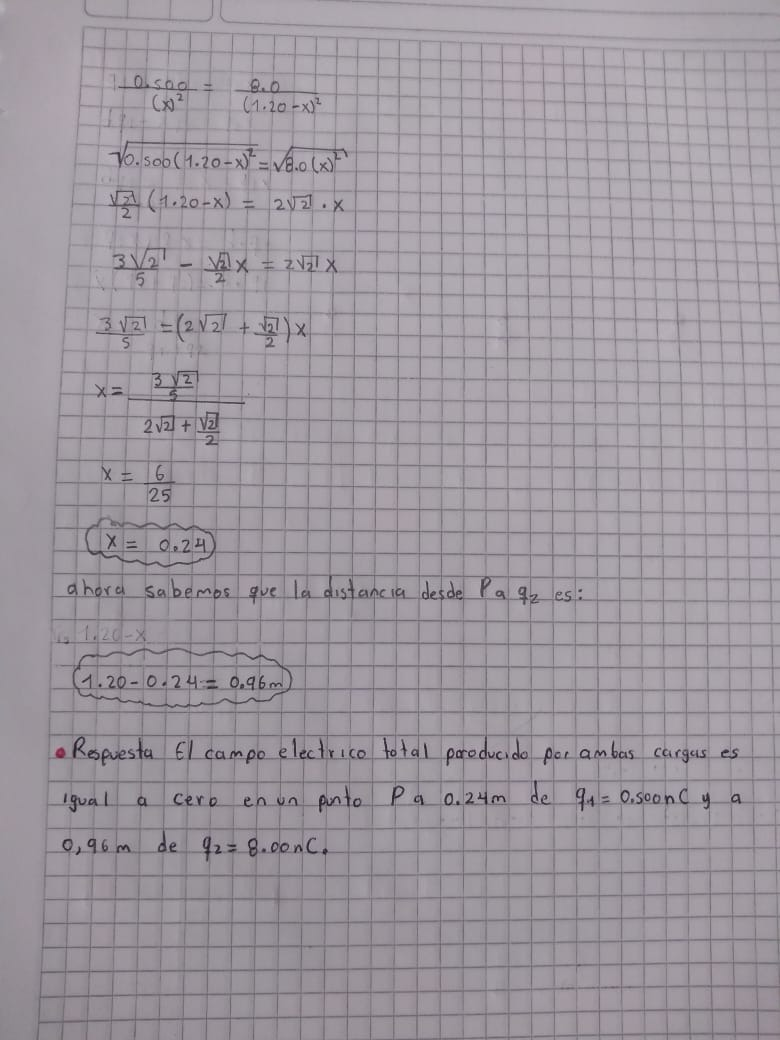 0.500/(x)² = 8.0/(1.20-x)²
√0.500(1.20-x)² = √8.0(x)²
√2/2 (1.20-x) = 2√2 · x
3√2/5 - √2/2 x = 2√2 x
3√2/5 = (2√2 + √2/2) x
x = (3√2/5)/(2√2 + √2/2)
x = 6/25
x = 0.24
ahora sabemos que la distancia desde P a q₂ es:
1.20-x
1.20-0.24 = 0.96m
• Respuesta El campo electrico total poroducido por ambas cargas es
igual a cero en un punto P a 0.24m de q₁ = 0.500nC y a
0,96m de q₂ = 8.00nC.